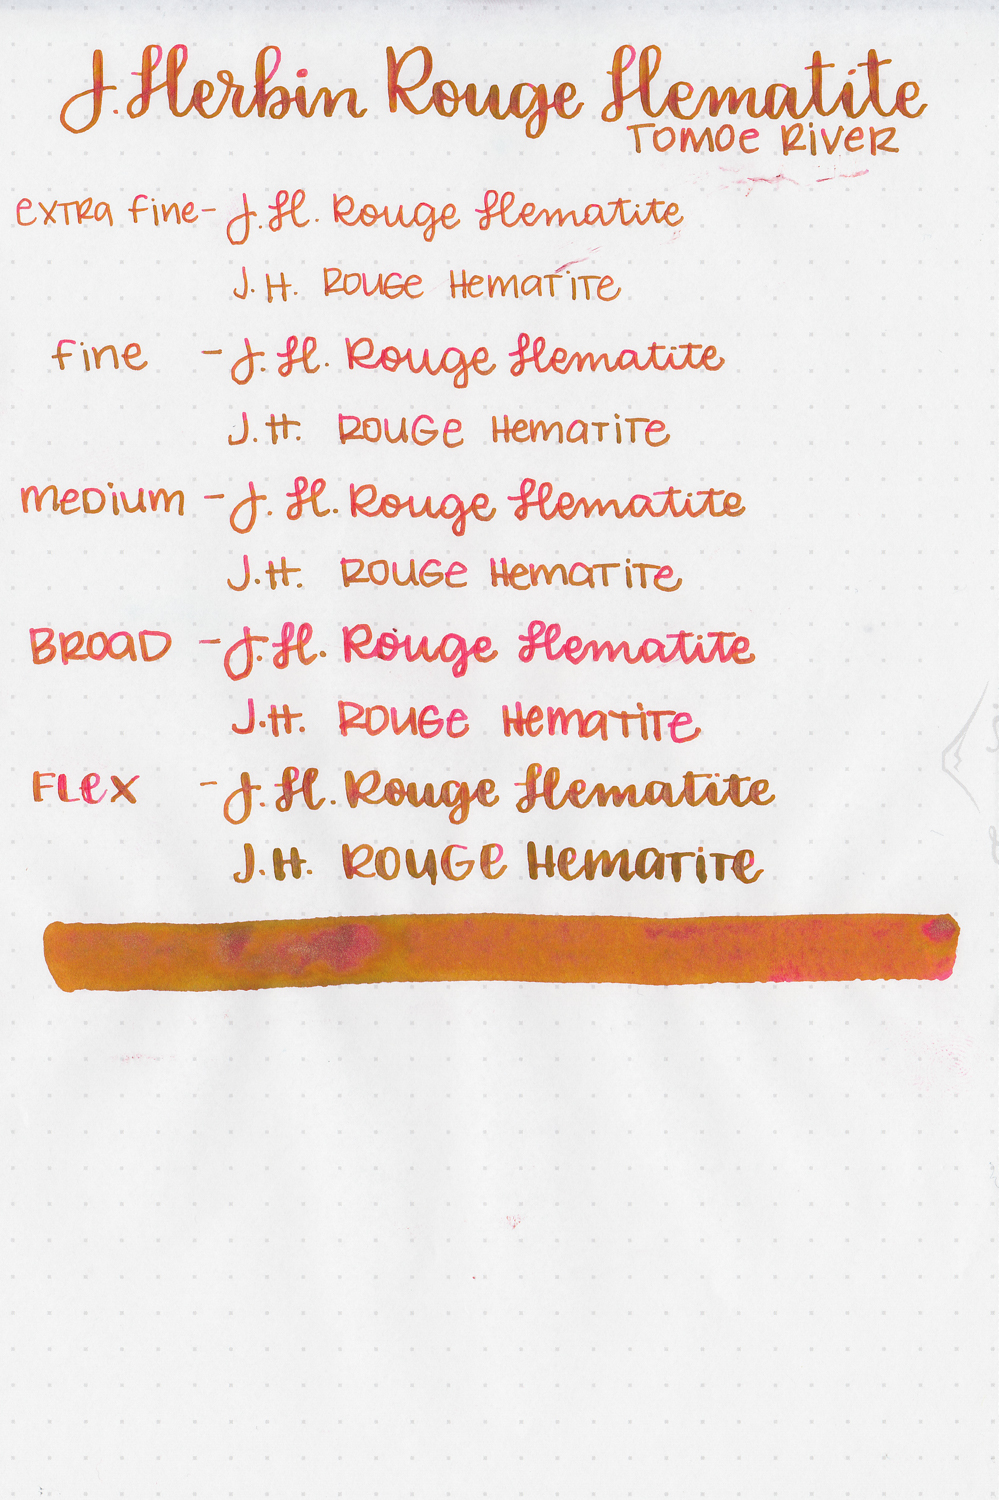 J. Herbin Rouge Hematite
Tomoe River
extra fine - J. H. Rouge Hematite
J. H. Rouge Hematite
fine - J. H. Rouge Hematite
J. H. Rouge Hematite
medium - J. H. Rouge Hematite
J. H. Rouge Hematite
Broad - J. H. Rouge Hematite
J. H. Rouge Hematite
Flex - J. H. Rouge Hematite
J. H. Rouge Hematite